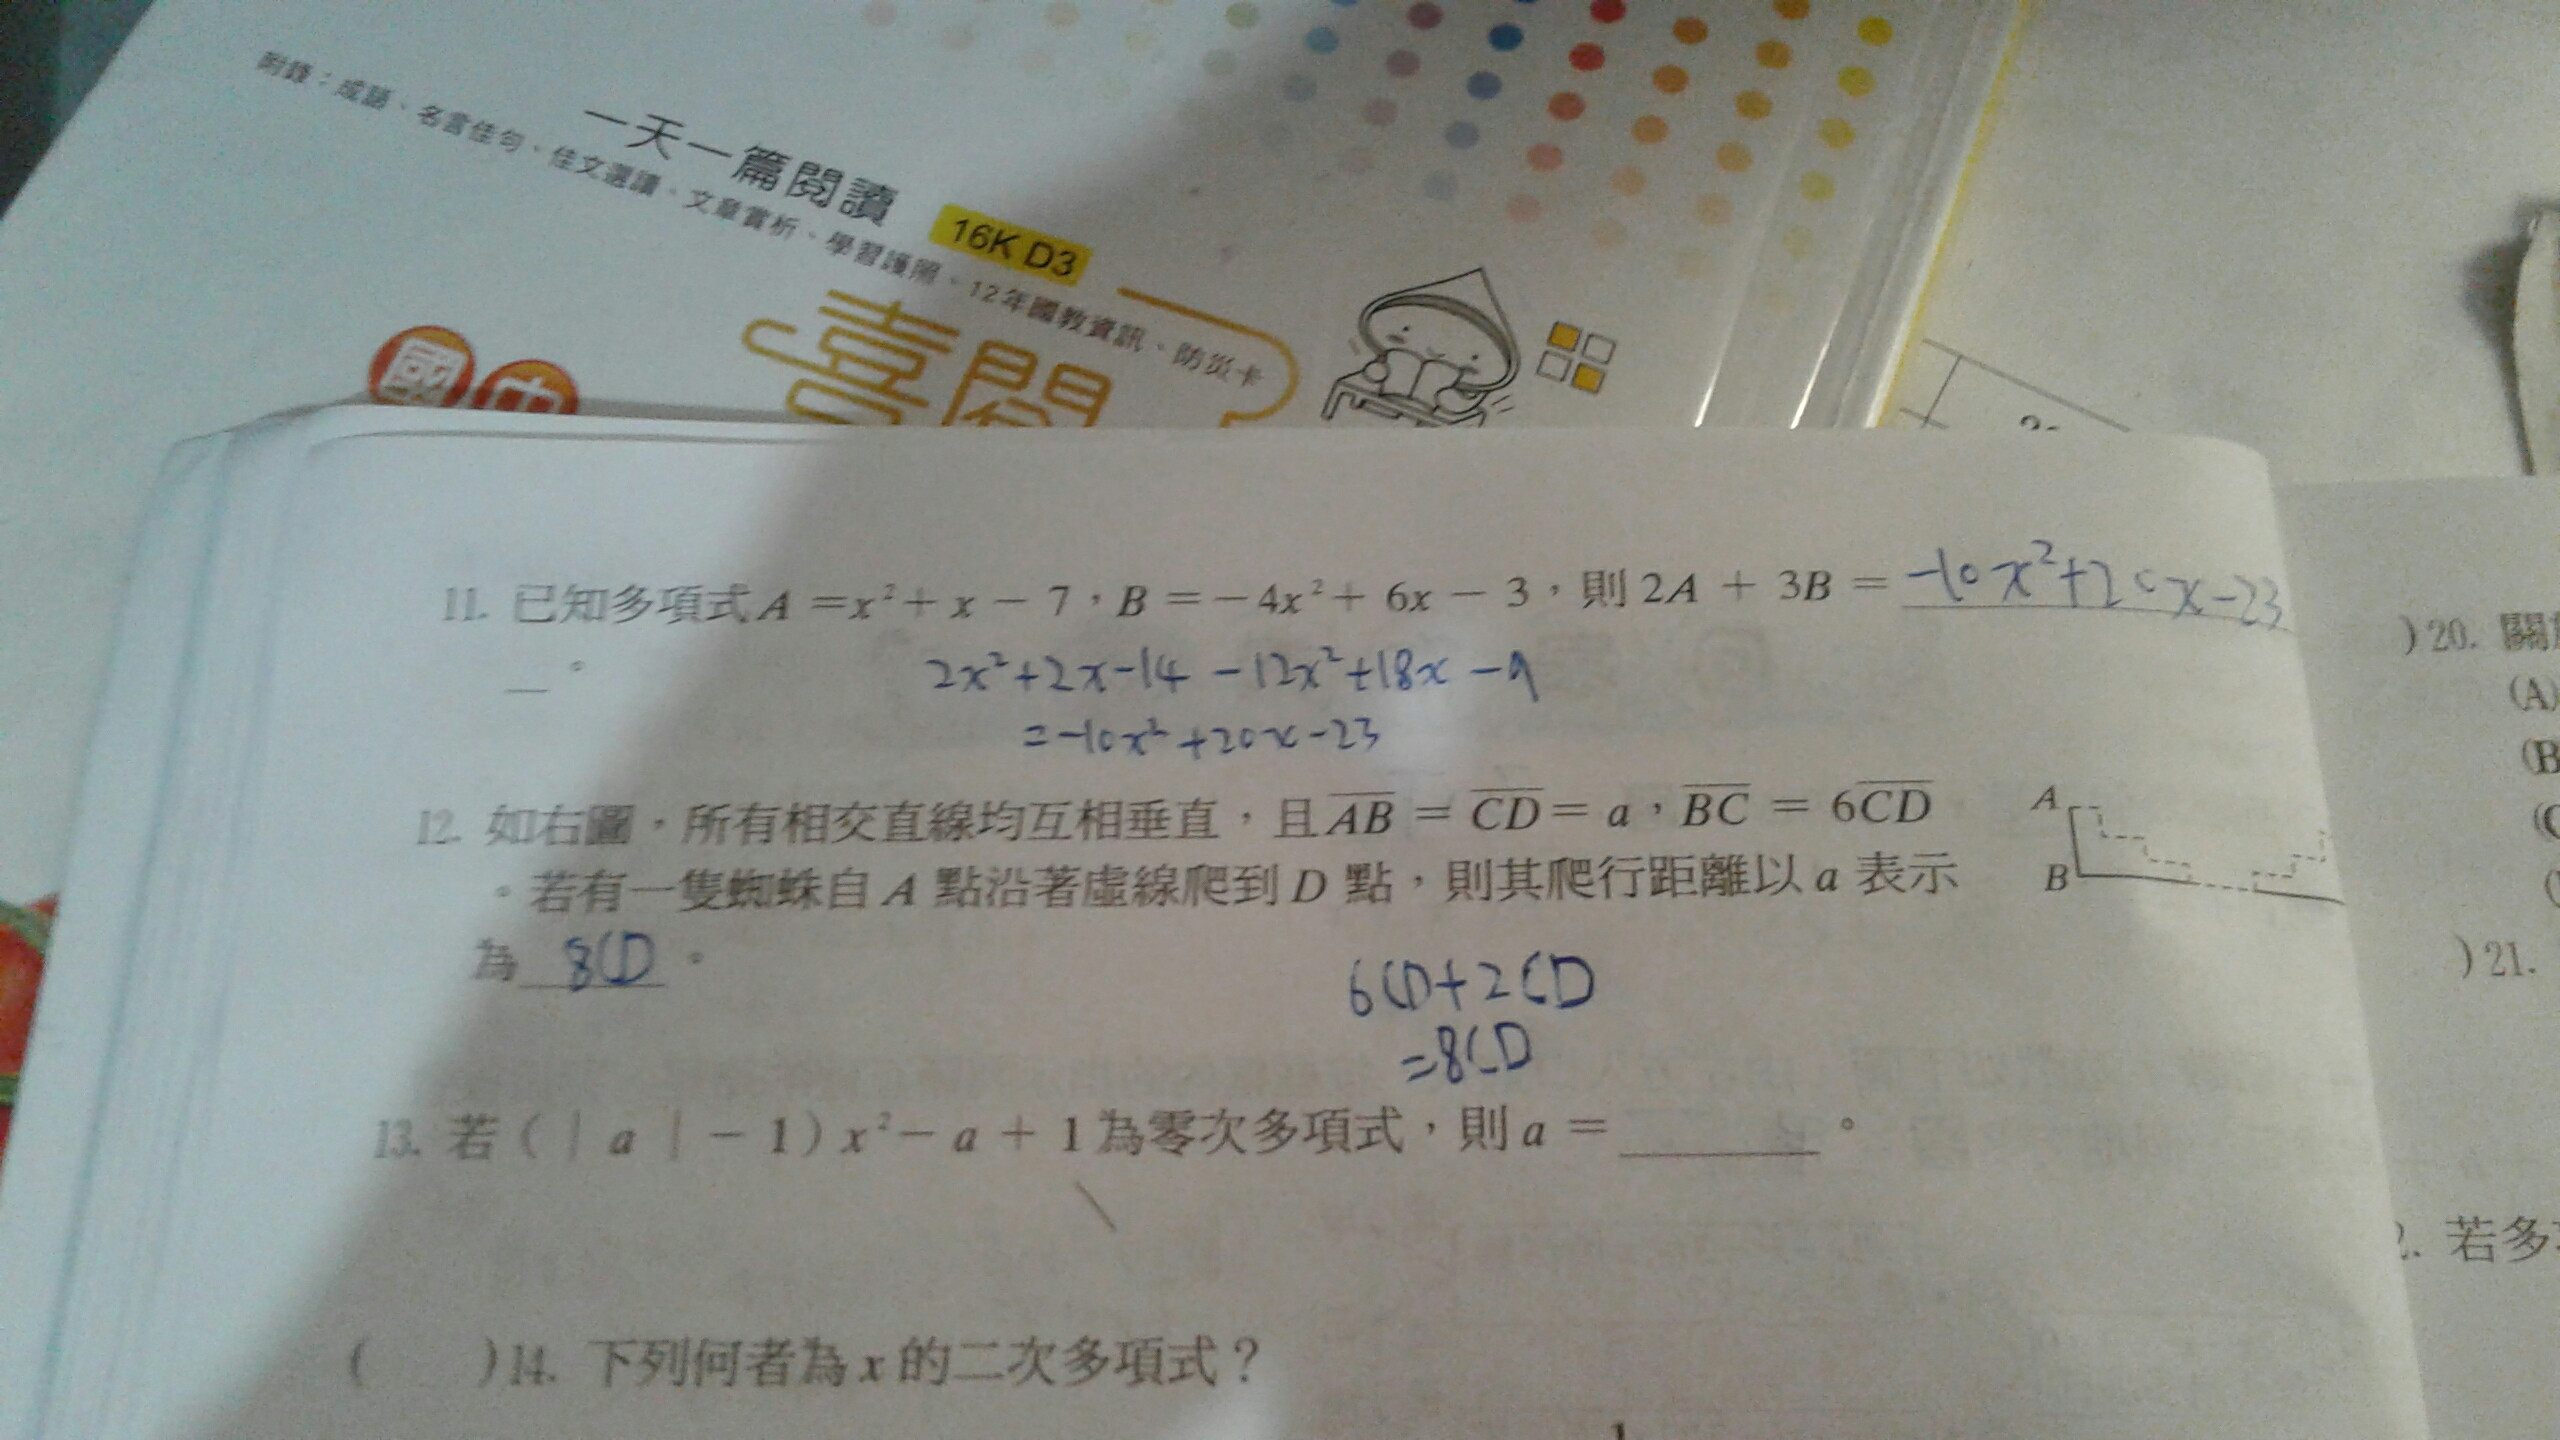 附錄：成語、名言佳句、佳文選讀、文章賞析、學習護照、12年國教資訊、防災卡
一天一篇閱讀
16K D3
國中
喜閱
11. 已知多項式 A =x²+ x − 7，B =−4x²+ 6x − 3，則 2A + 3B = -10x²+20x-23
。
2x²+2x-14 -12x²+18x -9
=-10x²+20x-23
12. 如右圖，所有相交直線均互相垂直，且 AB = CD = a，BC = 6CD
。若有一隻蜘蛛自 A 點沿著虛線爬到 D 點，則其爬行距離以 a 表示
為 8CD 。
A
B
6CD+2CD
=8CD
13. 若 (｜a｜− 1) x²− a + 1 為零次多項式，則 a = ______ 。
(　　)14. 下列何者為 x 的二次多項式？
)20. 關
(A)
(B
(C
)21.
2. 若多